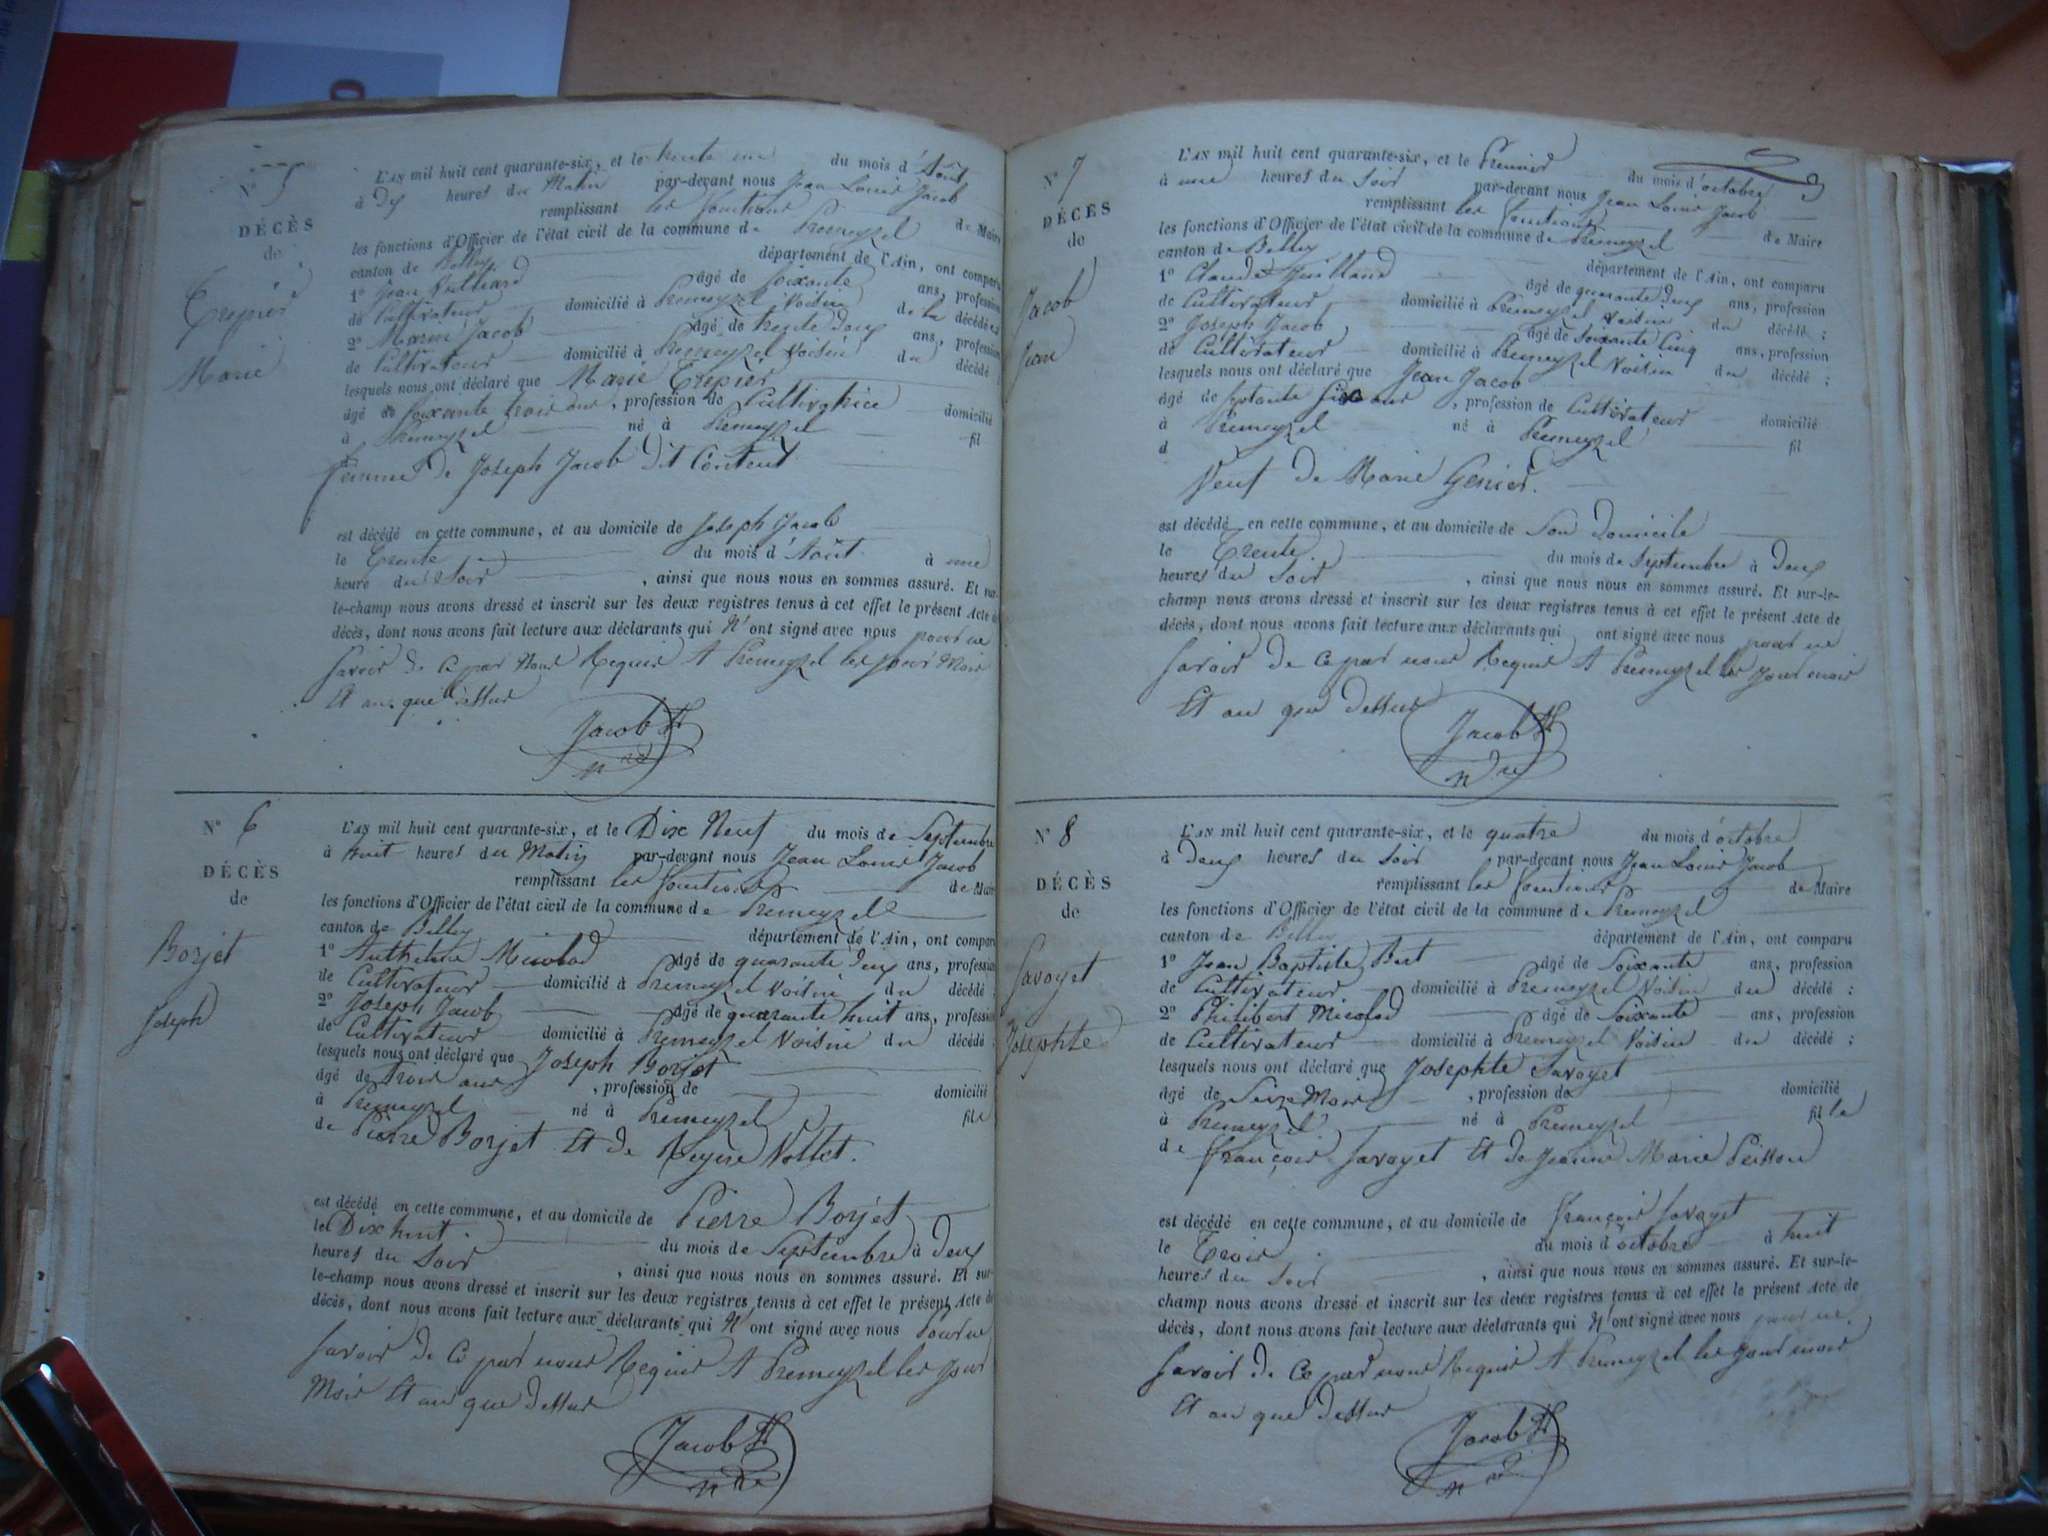 N° 5
DÉCÈS
de
Trepier
Marie
L'AN mil huit cent quarante-six, et le trente un du mois d'Août
à dix heures du Matin par-devant nous Jean Louis Jacob
remplissant les fonctions de Maire
les fonctions d'Officier de l'état civil de la commune de Premeyzel
canton de Belley département de l'Ain, ont comparu
1° Jean âgé de soixante ans, profession
de Cultivateur domicilié à Premeyzel Voisin de la décédée
2° Marin Jacob âgé de trente deux ans, profession
de Cultivateur domicilié à Premeyzel Voisin du décédé ;
lesquels nous ont déclaré que Marie Trepier
âgé de soixante trois ans, profession de Cultivatrice domicilié
à Premeyzel né à Premeyzel fil
femme de Joseph Jacob dit Content
est décédé en cette commune, et au domicile de Joseph Jacob
le Trente du mois d'Août à une
heure du Soir, ainsi que nous nous en sommes assuré. Et sur-
le-champ nous avons dressé et inscrit sur les deux registres tenus à cet effet le présent Acte de
décès, dont nous avons fait lecture aux déclarants qui N'ont signé avec nous pour ne
savoir de ce par nous Requis A Premeyzel les jour Mois
Et an que dessus
Jacob
N° 6
DÉCÈS
de
Borjet
Joseph
L'AN mil huit cent quarante-six, et le Dix Neuf du mois de Septembre
à huit heures du Matin par-devant nous Jean Louis Jacob
remplissant les fonctions de Maire
les fonctions d'Officier de l'état civil de la commune de Premeyzel
canton de Belley département de l'Ain, ont comparu
1° Anthelme Micolod âgé de quarante deux ans, profession
de Cultivateur domicilié à Premeyzel Voisin du décédé ;
2° Joseph Jacob âgé de quarante huit ans, profession
de Cultivateur domicilié à Premeyzel Voisin du décédé ;
lesquels nous ont déclaré que Joseph Borjet
âgé de trois ans, profession de domicilié
à Premeyzel né à Premeyzel fils
de Pierre Borjet Et de Reyne Vollet.
est décédé en cette commune, et au domicile de Pierre Borjet
le Dix huit du mois de Septembre à deux
heures du Soir, ainsi que nous nous en sommes assuré. Et sur-
le-champ nous avons dressé et inscrit sur les deux registres tenus à cet effet le présent Acte de
décès, dont nous avons fait lecture aux déclarants qui N'ont signé avec nous Pour ne
savoir de Ce par nous Requis A Premeyzel les jour
Mois Et an que dessus
Jacob
N° 7
DÉCÈS
de
Jacob
Jean
L'AN mil huit cent quarante-six, et le Premier du mois d'octobre
à une heures du Soir par-devant nous Jean Louis Jacob
remplissant les fonctions de Maire
les fonctions d'Officier de l'état civil de la commune de Premeyzel
canton de Belley département de l'Ain, ont comparu
1° Claude âgé de quarante deux ans, profession
de Cultivateur domicilié à Premeyzel Voisin du décédé ;
2° Joseph Jacob âgé de soixante Cinq ans, profession
de Cultivateur domicilié à Premeyzel Voisin du décédé ;
lesquels nous ont déclaré que Jean Jacob
âgé de septante ans, profession de Cultivateur domicilié
à Premeyzel né à Premeyzel fil
d
Veuf de Marie Genier.
est décédé en cette commune, et au domicile de Son domicile
le Trente du mois de Septembre à deux
heures du Soir, ainsi que nous nous en sommes assuré. Et sur-le-
champ nous avons dressé et inscrit sur les deux registres tenus à cet effet le présent Acte de
décès, dont nous avons fait lecture aux déclarants qui ont signé avec nous pour ne
savoir de Ce par nous Requis A Premeyzel les jour mois
Et an que dessus
Jacob
N° 8
DÉCÈS
de
Savoyet
Josephte
L'AN mil huit cent quarante-six, et le quatre du mois d'octobre
à deux heures du Soir par-devant nous Jean Louis Jacob
remplissant les fonctions de Maire
les fonctions d'Officier de l'état civil de la commune de Premeyzel
canton de Belley département de l'Ain, ont comparu
1° Jean Baptiste Bert âgé de Soixante ans, profession
de Cultivateur domicilié à Premeyzel Voisin du décédé ;
2° Philibert Micolod âgé de Soixante ans, profession
de Cultivateur domicilié à Premeyzel Voisin du décédé ;
lesquels nous ont déclaré que Josephte Savoyet
âgé de Seize Mois, profession de domicilié
à Premeyzel né à Premeyzel fille
de françois Savoyet Et de Jeanne Marie Peisson
est décédé en cette commune, et au domicile de françois Savoyet
le Trois du mois d'octobre à huit
heures du Soir, ainsi que nous nous en sommes assuré. Et sur-le-
champ nous avons dressé et inscrit sur les deux registres tenus à cet effet le présent Acte de
décès, dont nous avons fait lecture aux déclarants qui N'ont signé avec nous pour ne
savoir de Ce par nous Requis A Premeyzel les jour mois
Et an que dessus
Jacob